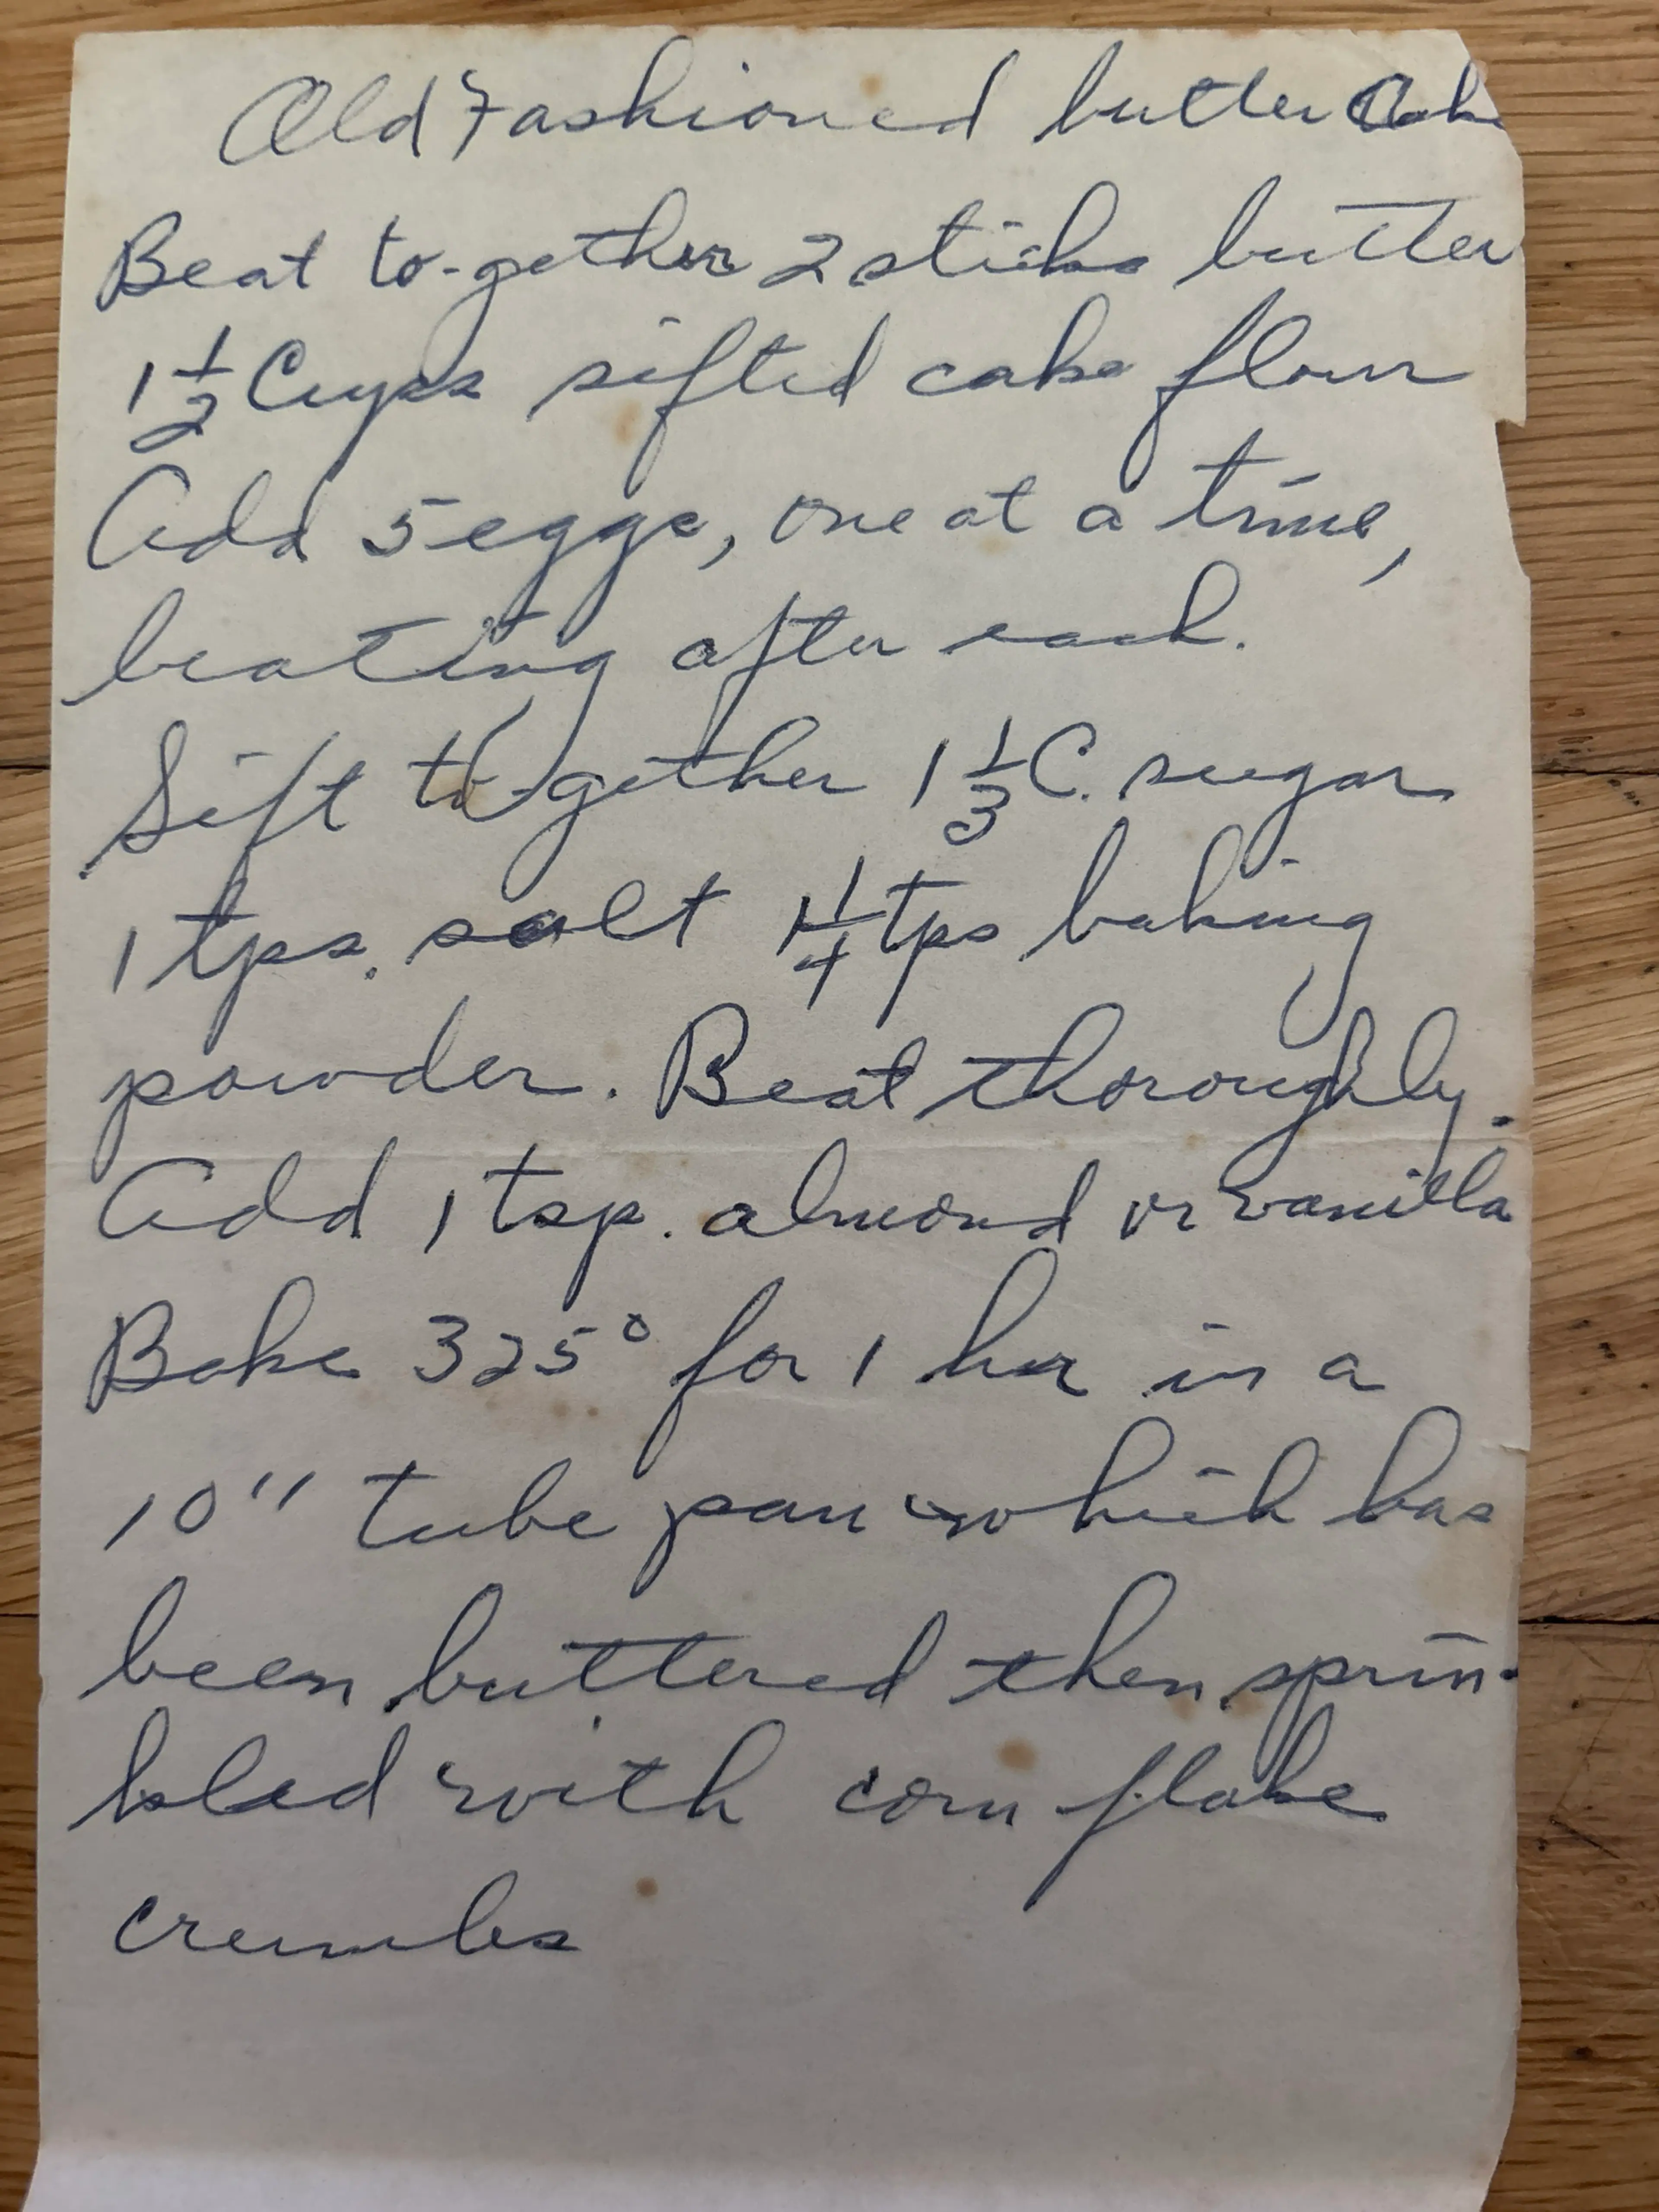 Old Fashioned butter Cake
Beat to-gether 2 sticks butter
1 1/2 Cups sifted cake flour
Add 5 eggs, one at a time,
beating after each.
Sift to-gether 1 1/3 C. sugar
1 tps. salt 1 1/4 tps baking
powder. Beat thoroughly.
Add 1 tsp. almond or vanilla
Bake 325° for 1 hr in a
10" tube pan which has
been buttered then sprin-
kled with corn flake
crumbs